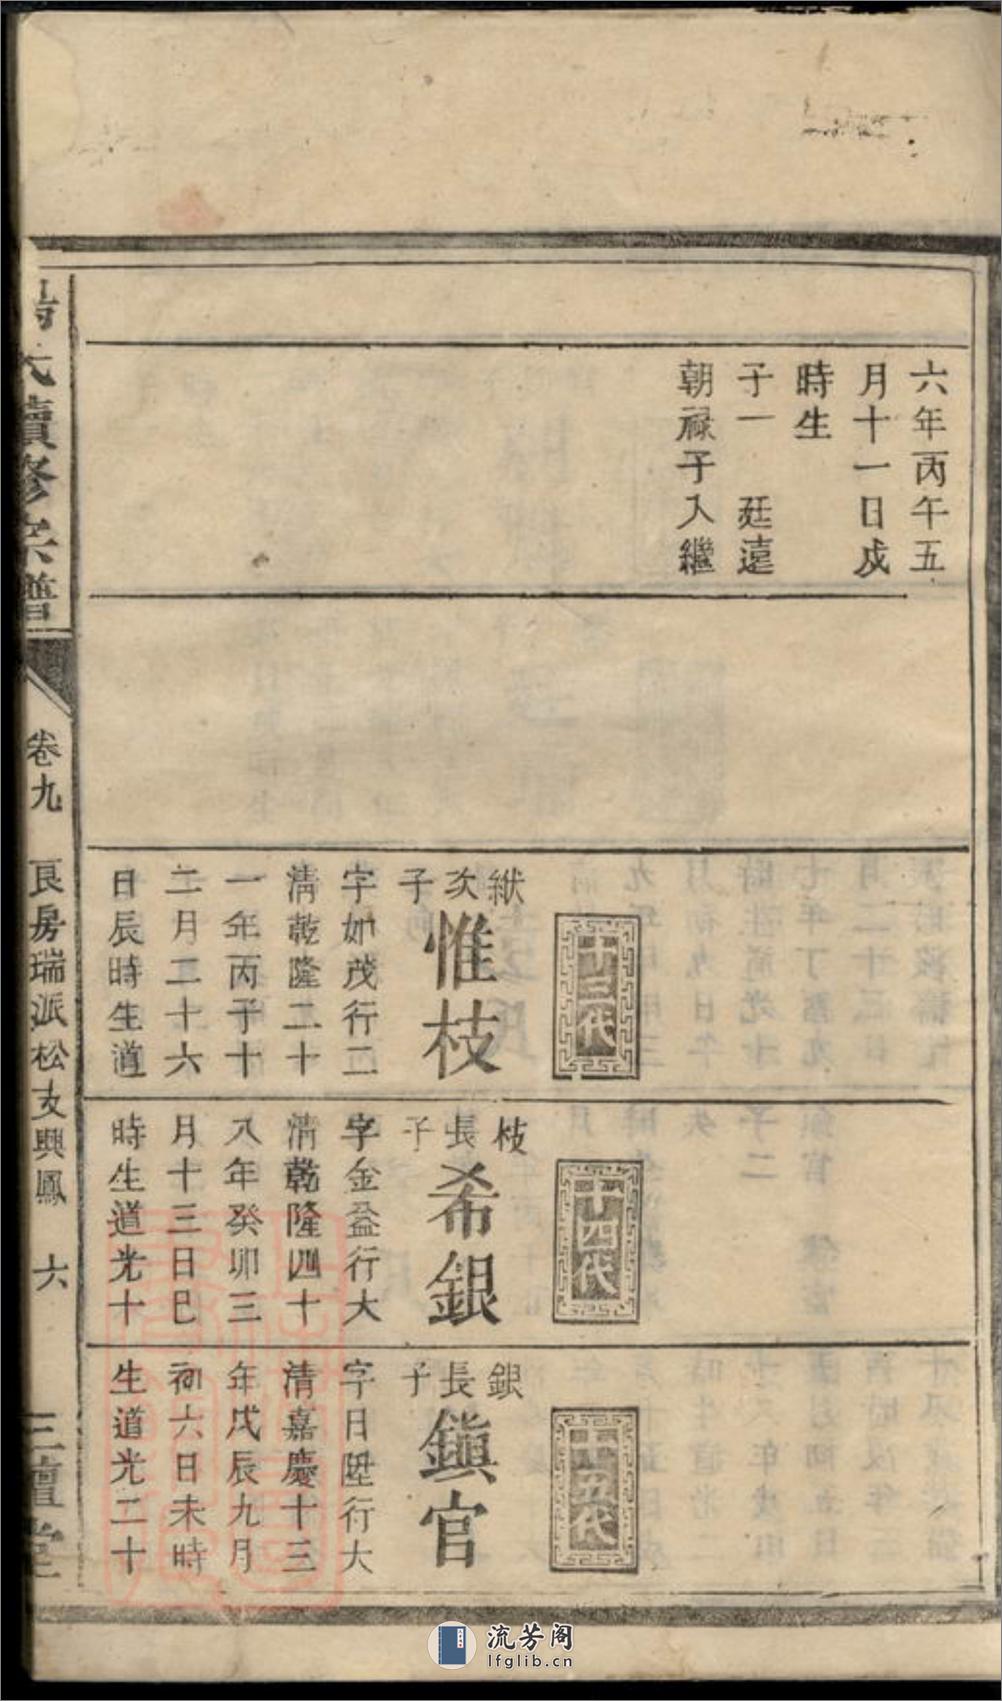 六年丙午五
月十一日戌
時生
子一　廷遠
朝祿子入繼
十三代
紱次子
惟枝
字如茂行二
清乾隆二十
一年丙子十
二月二十六
日辰時生道
十四代
枝長子
希銀
字金益行大
清乾隆四十
八年癸卯三
月十三日巳
時生道光十
十五代
銀長子
鎮官
字日陞行大
清嘉慶十三
年戊辰九月
初六日未時
生道光二十
氏續修宗譜
卷九
良房瑞派松支興鳳
六
三壇堂
流芳阁
lfglib.cn